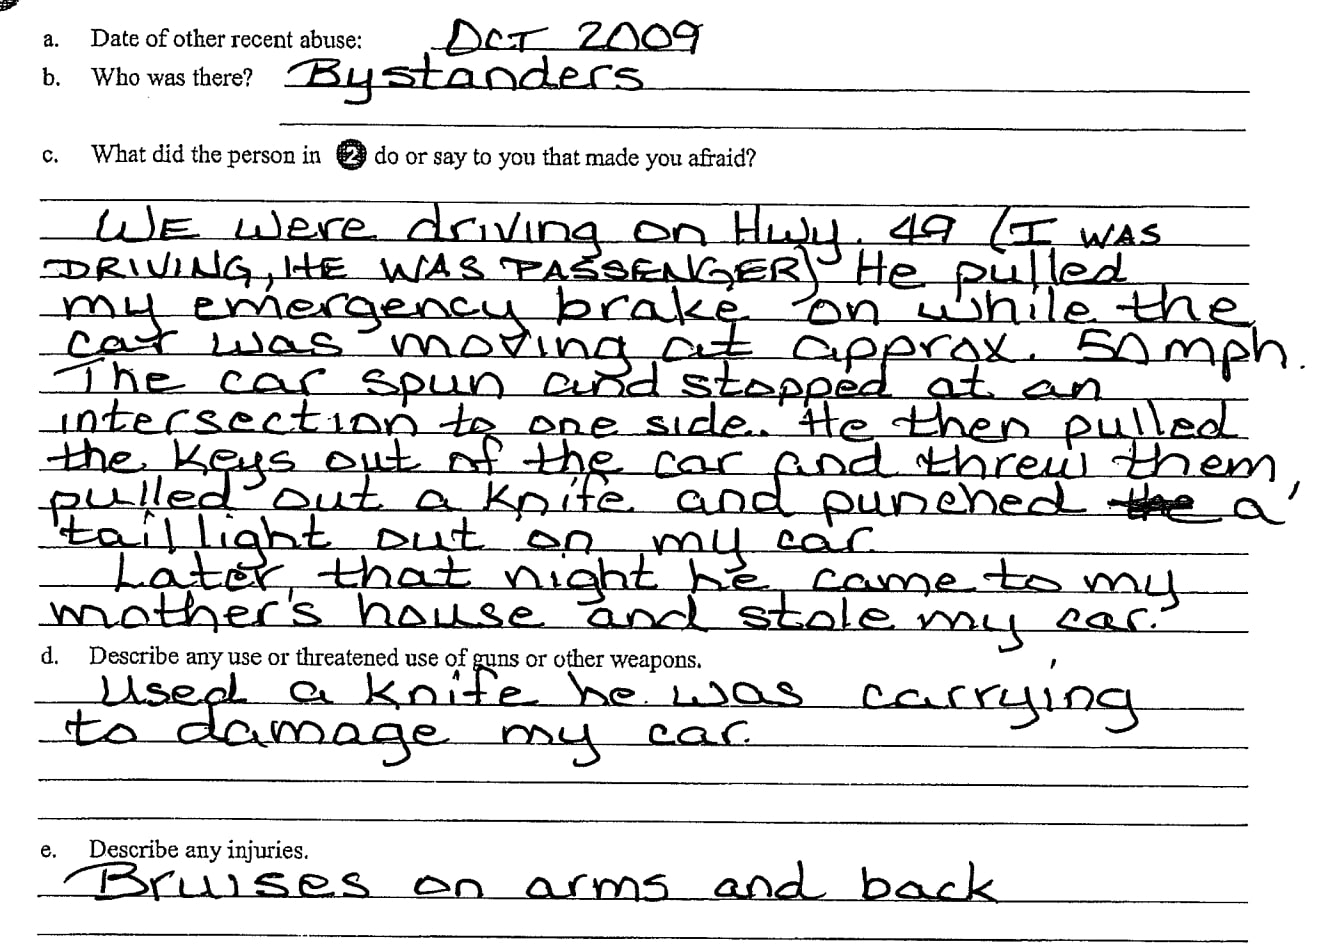 a. Date of other recent abuse: Oct 2009
b. Who was there? Bystanders
c. What did the person in 2 do or say to you that made you afraid?
WE were driving on Hwy. 49 (I WAS
DRIVING, HE WAS PASSENGER) He pulled
my emergency brake on while the
car was moving at approx. 50 mph.
The car spun and stopped at an
intersection to one side. He then pulled
the keys out of the car and threw them,
pulled out a knife and punched the a
taillight out on my car.
Later that night he came to my
mother's house and stole my car.
d. Describe any use or threatened use of guns or other weapons.
Used a knife he was carrying
to damage my car.
e. Describe any injuries.
Bruises on arms and back